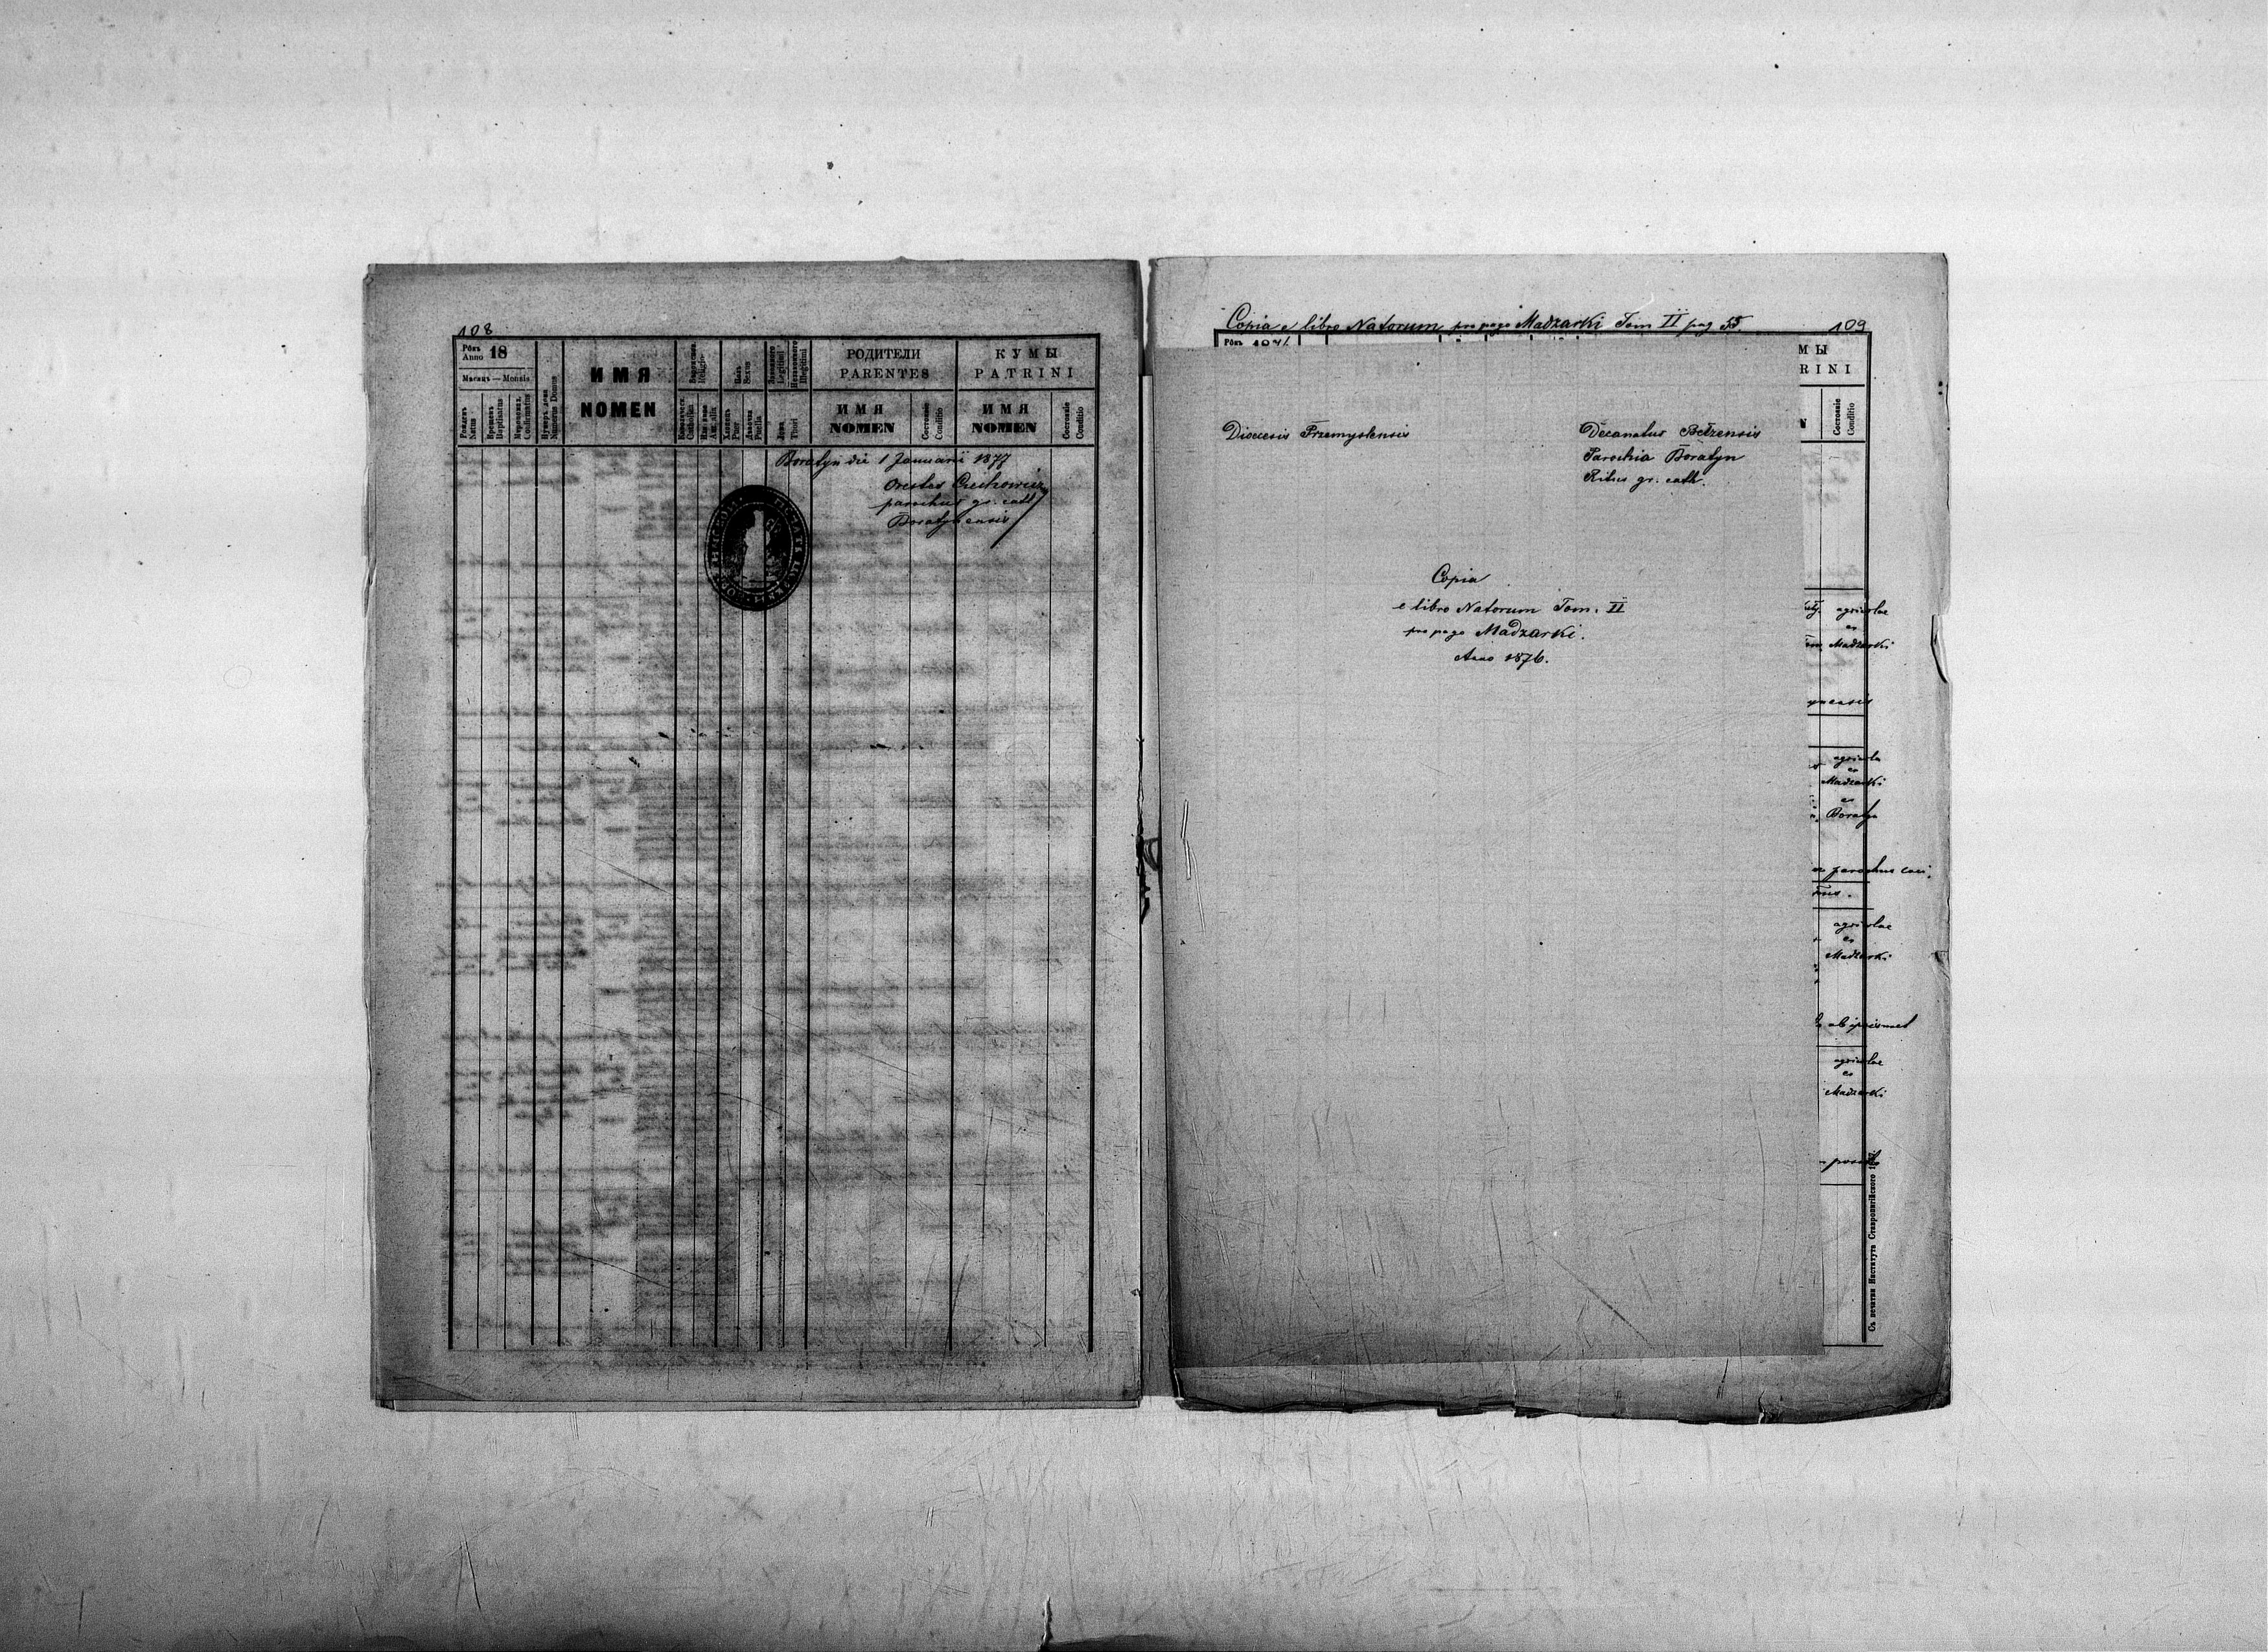 108
Рôкъ
Anno 18
Мѣсяць — Mensis
Рожденъ
Natus
Крещенъ
Baptisatus
Мѵропомаз.
Confirmatus
Нумеръ дома
Numerus Domus
ИМЯ
NOMEN
Religio
Catholica
Aut alia
Полъ
Sexus
Хлопецъ
Puer
Дѣвочка
Puella
Legitimi
Illegitimi
Ложа
Thori
РОДИТЕЛИ
PARENTES
ИМЯ
NOMEN
Состояніе
Conditio
КУМЫ
PATRINI
ИМЯ
NOMEN
Состояніе
Conditio
Boratyn die 1 Januarii 1877
Orestes Czechowicz
parochus gr. cath
Boratynensis
Copia e libro Natorum pro pago Madzarki Tom II pag 55.
109
Рôкъ 1876
МЫ
RINI
N
Состояніе
Conditio
Dioecesis Przemyslensis
Decanatus Bełzensis
Parochia Boratyn
Ritus gr. cath.
Copia
e libro Natorum Tom. II
pro pago Madzarki.
Anno 1876.
agricolae
ex
Madzarki
ynensis
agricola
ex
Madzarki
ex
Boratyn
parochus loci.
agricolae
ex
Madzarki
ab ipsismet
agricolae
ex
Madzarki
Съ печатни Института Ставропигійского